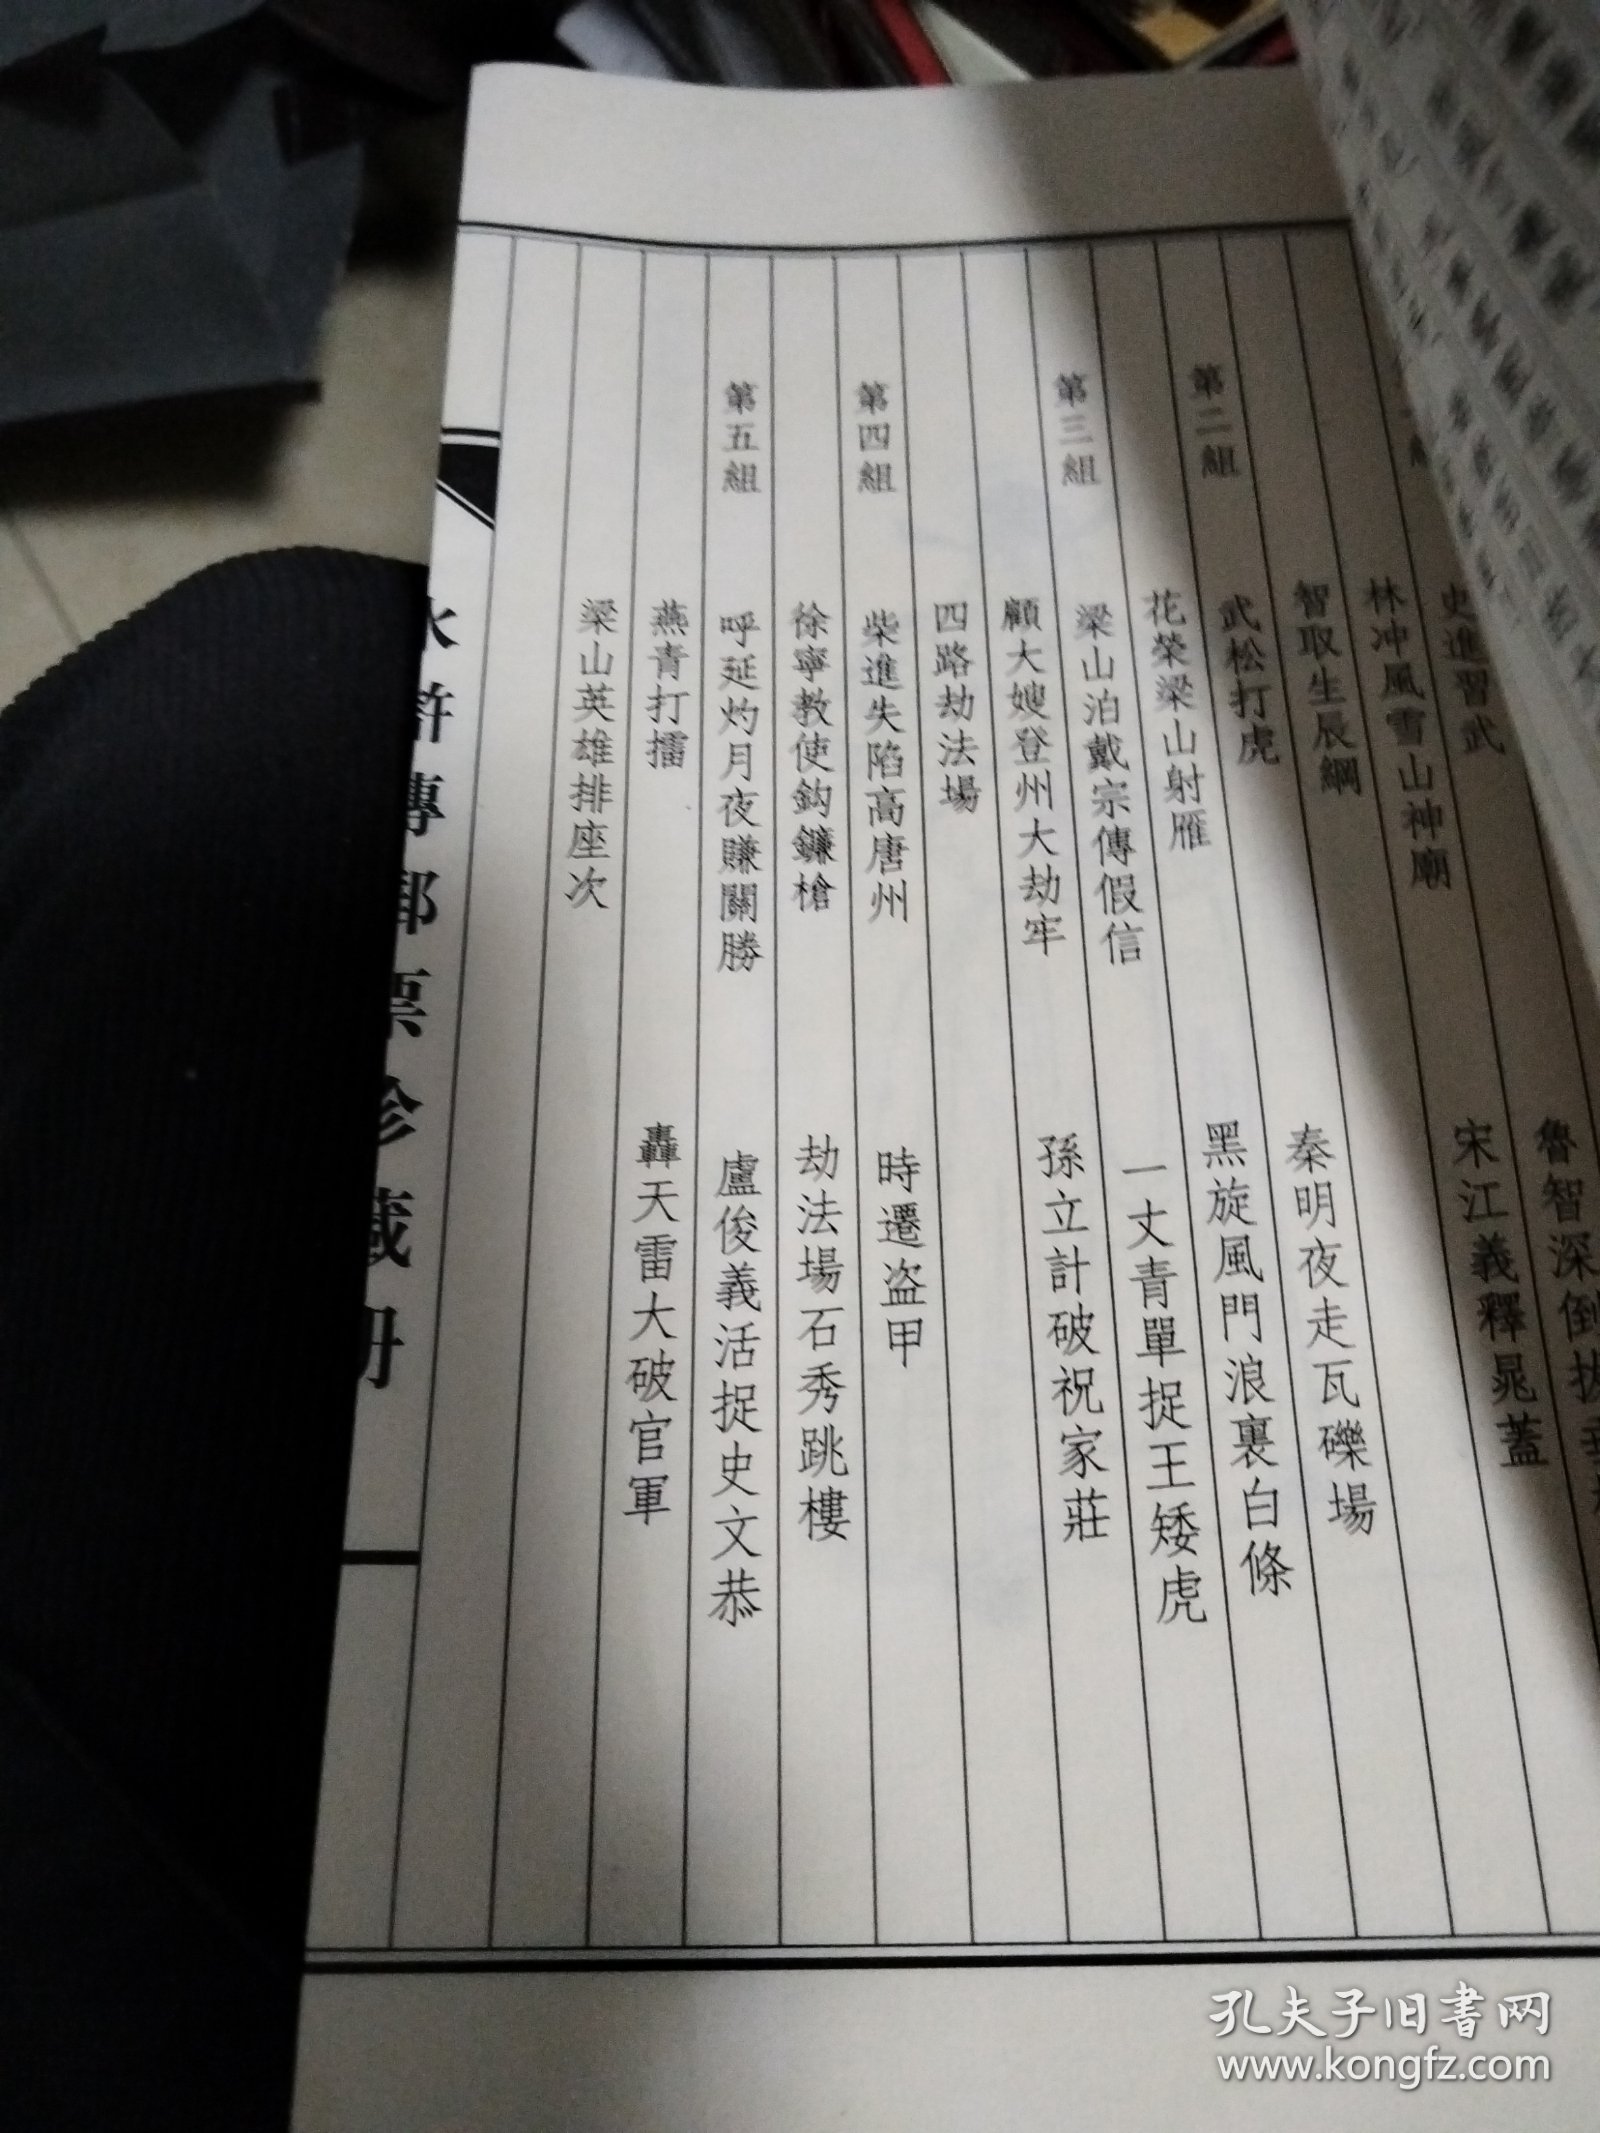 史進習武
魯智深倒拔
林冲風雪山神廟
宋江義釋晁蓋
智取生辰綱
第二組
武松打虎
秦明夜走瓦礫場
花榮梁山射雁
黑旋風鬥浪裏白條
第三組
梁山泊戴宗傳假信
一丈青單捉王矮虎
顧大嫂登州大劫牢
孫立計破祝家莊
四路劫法場
第四組
柴進失陷高唐州
時遷盜甲
徐寧教使鈎鐮槍
劫法場石秀跳樓
第五組
呼延灼月夜賺關勝
盧俊義活捉史文恭
燕青打擂
轟天雷大破官軍
梁山英雄排座次
水滸傳郵票珍藏册
孔夫子旧書网
www.kongfz.com